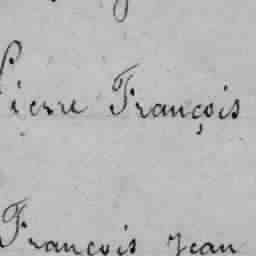 Pierre François
François Jean